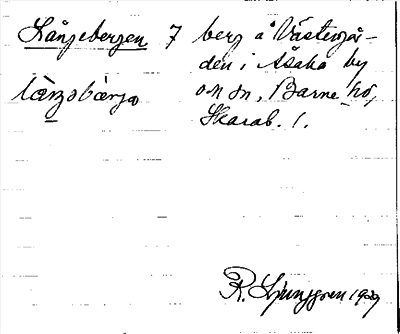 Långebergen 7 berg å Västergår-
den i Åsaka by
och sn, Barne hd,
Skarab. l.
R. Ljunggren 1929